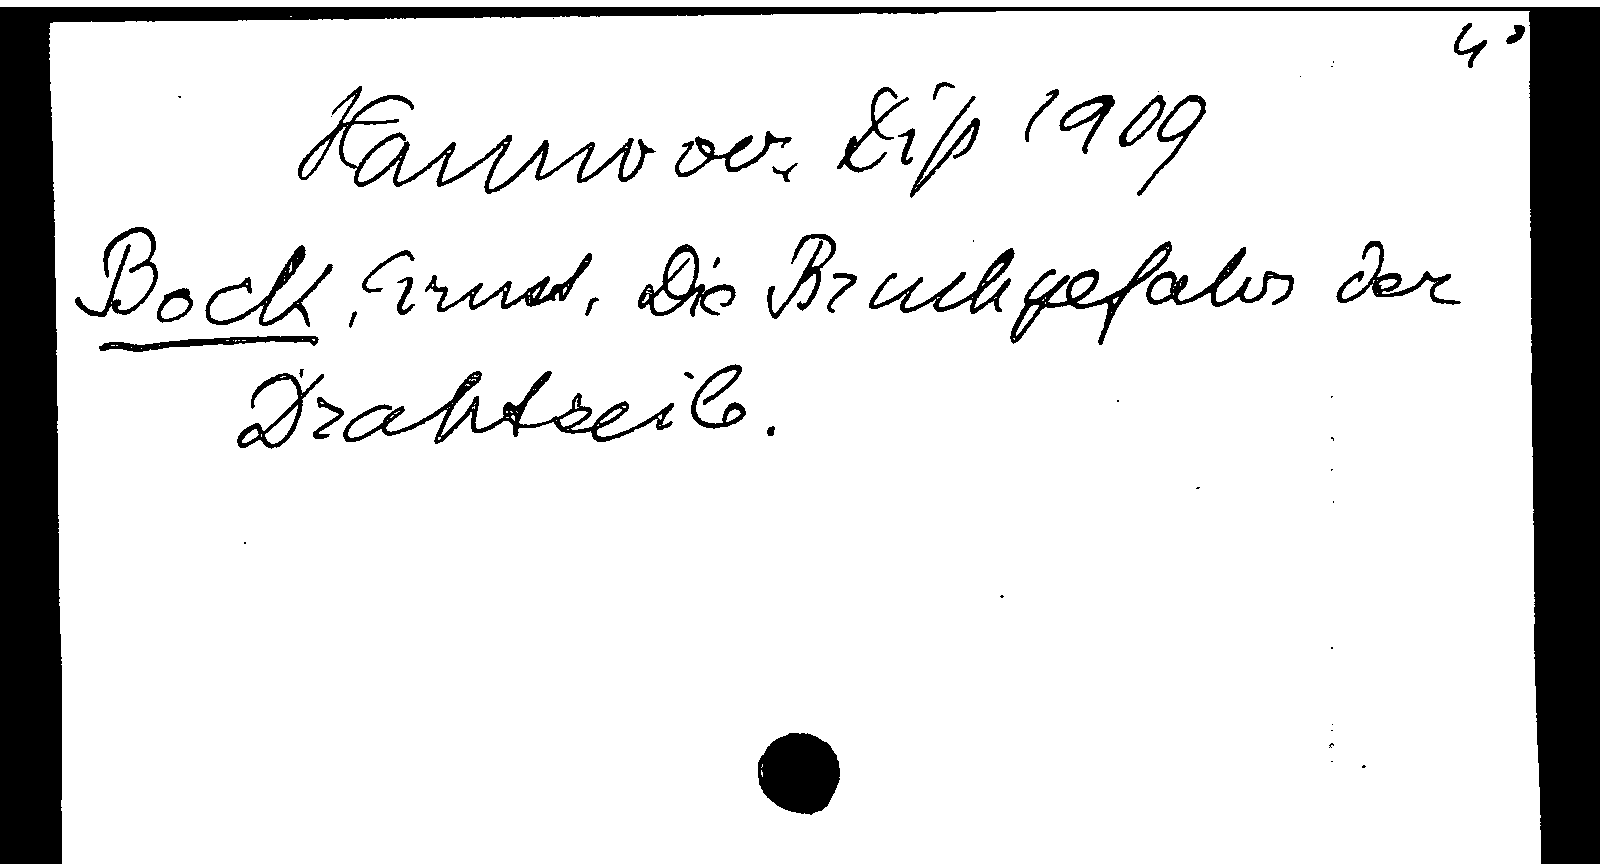 4°
Hannover, Diss 1909
Bock, Ernst, Die Bruchgefahr der
Drahtseile.